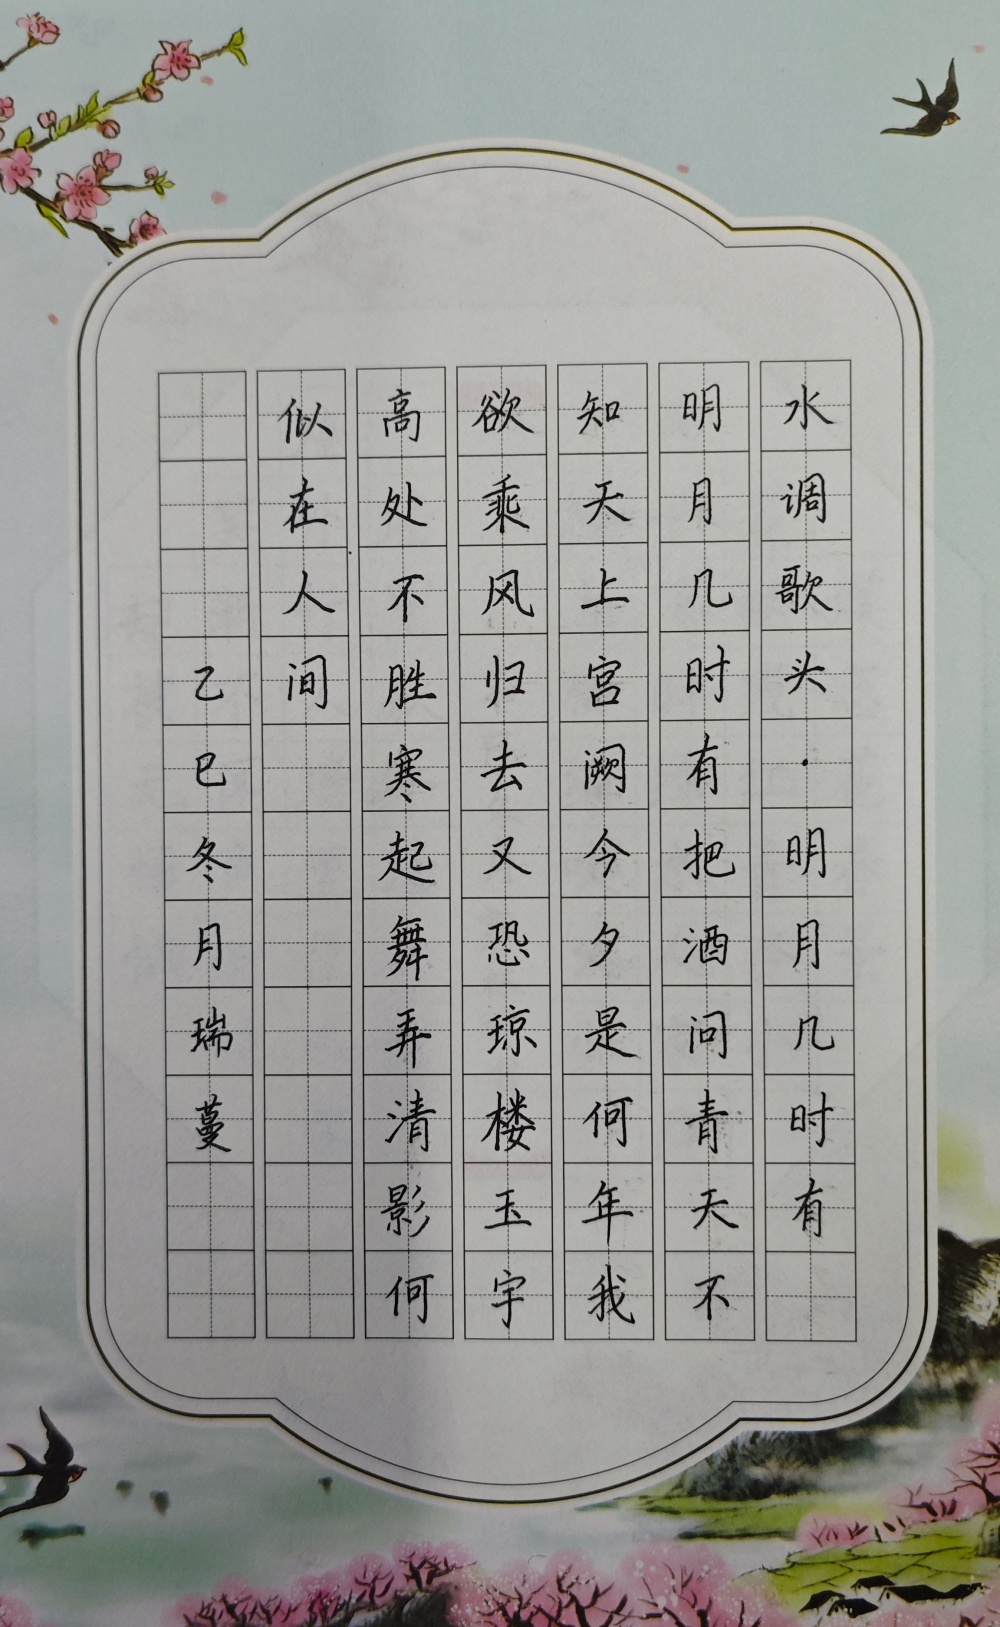 水调歌头·明月几时有
明月几时有把酒问青天不
知天上宫阙今夕是何年我
欲乘风归去又恐琼楼玉宇
高处不胜寒起舞弄清影何
似在人间
乙巳冬月瑞蔓